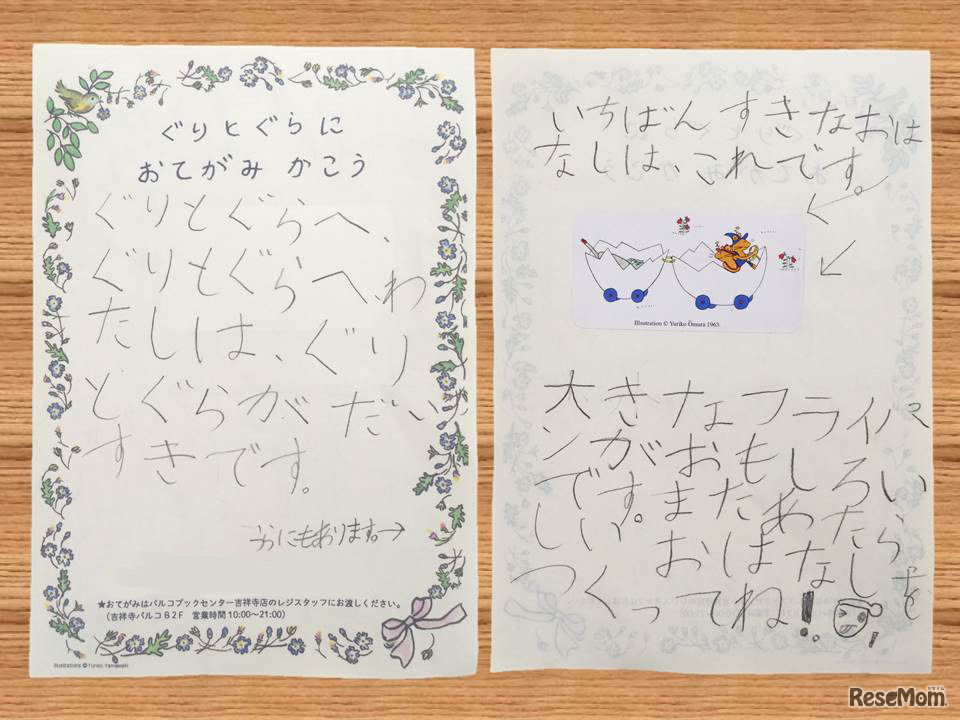 ぐりとぐらに
おてがみ かこう
ぐりとぐらへ、
ぐりとぐらへ、わ
たしは、ぐり
とぐらがだい
すきです。
にもあります。→
★おてがみはパルコブックセンター吉祥寺店のレジスタッフにお渡しください。
(吉祥寺パルコB2F 営業時間10:00~21:00)
Illustrations ©Yuriko Yamawaki
いちばん すきなおは
なしは、これです。
Illustration © Yuriko Ōmura 1963.
大きなフライパ
ンがおもしろい
です。またあたら
しい おはなしを
つくってね!
ReseMom
リセマム